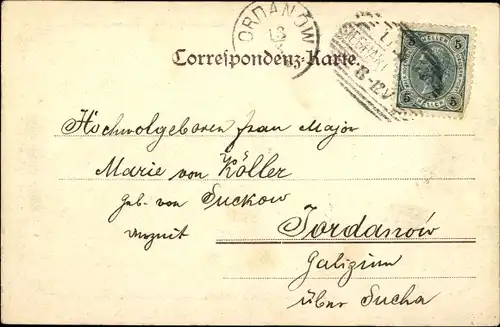 ORDANÓW
13
Correspondenz-Karte.
5 5
HELLER
Hochwolgeboren frau Major
Marie von Köller
geb. von Suckow
Jordanów
Galizien
über Sucha